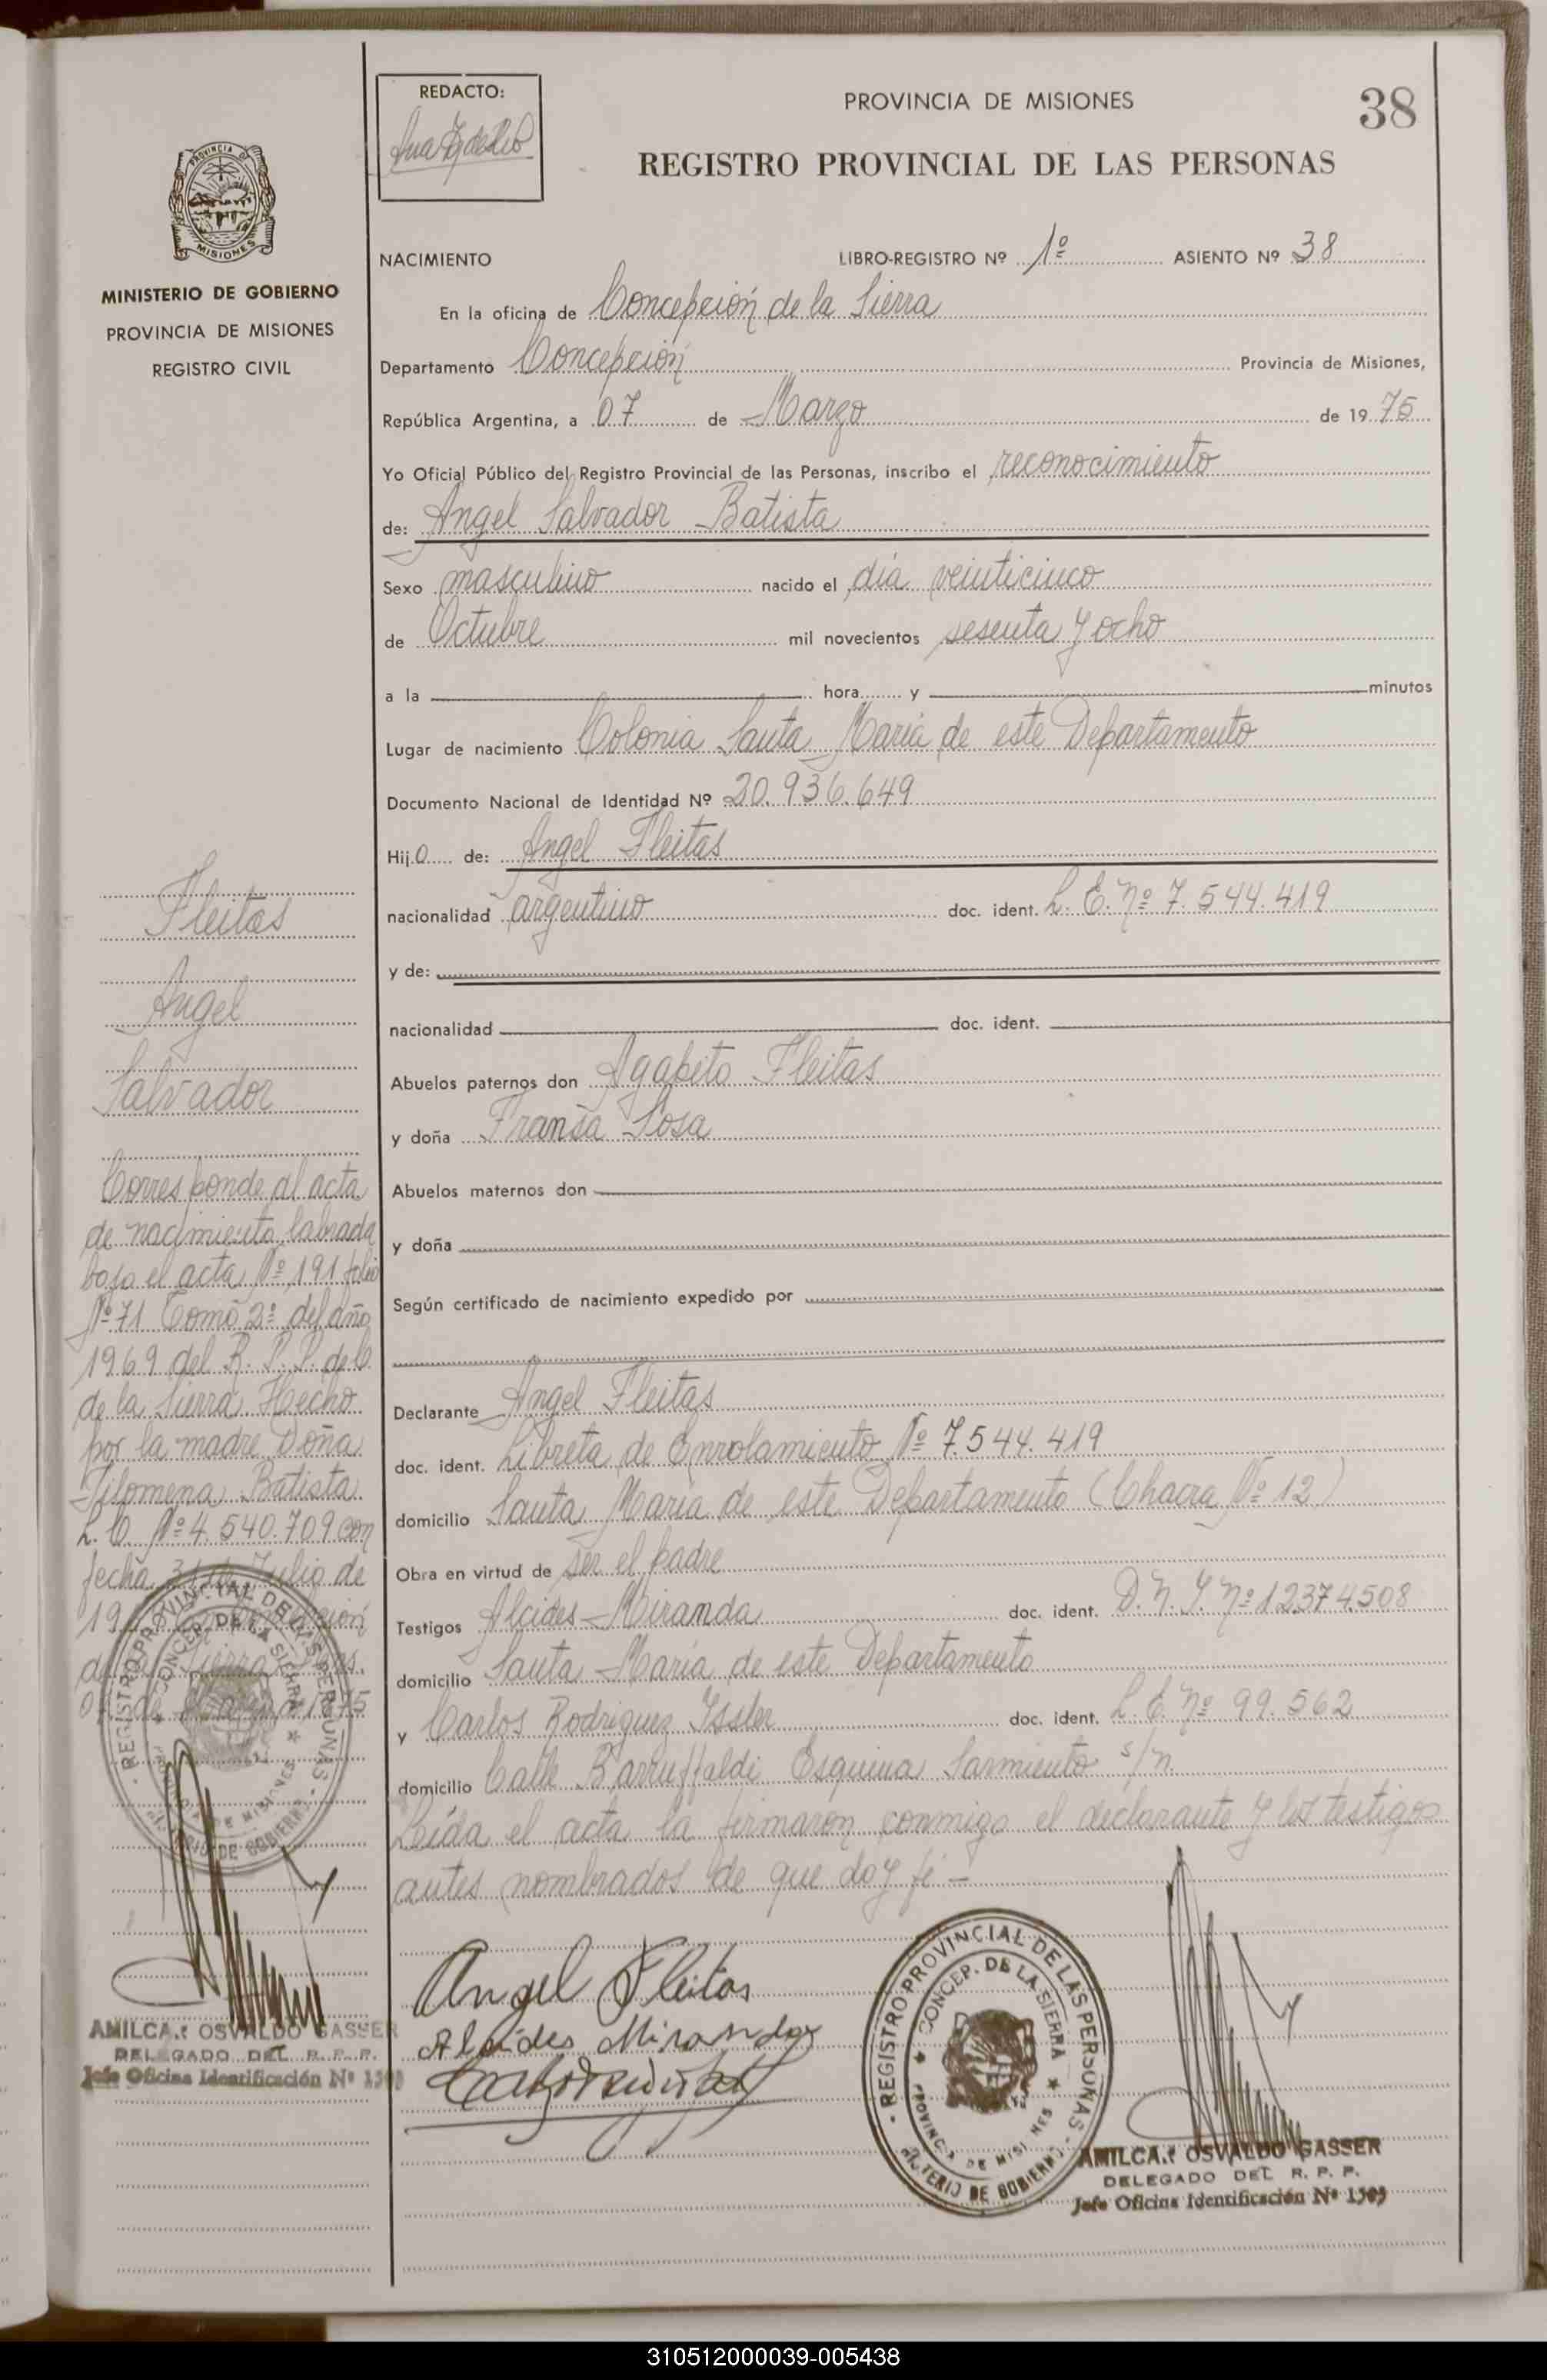 REDACTO:
PROVINCIA DE MISIONES
38
REGISTRO PROVINCIAL DE LAS PERSONAS
PROVINCIA DE
MISIONES
MINISTERIO DE GOBIERNO
PROVINCIA DE MISIONES
REGISTRO CIVIL
NACIMIENTO LIBRO-REGISTRO Nº 1º ASIENTO Nº 38
En la oficina de Concepción de la Sierra
Departamento Concepción Provincia de Misiones,
República Argentina, a 07 de Marzo de 19 75
Yo Oficial Público del Registro Provincial de las Personas, inscribo el reconocimiento
de: Angel Salvador Batista
Sexo masculino nacido el día veinticinco
de Octubre mil novecientos sesenta y ocho
a la hora y minutos
Lugar de nacimiento Colonia Santa María de este Departamento
Documento Nacional de Identidad Nº 20.936.649
Hijo de: Angel Fleitas
nacionalidad argentino doc. ident. L. E. Nº 7.544.419
y de:
nacionalidad doc. ident.
Abuelos paternos don Agapito Fleitas
y doña Fransa Sosa
Abuelos maternos don
y doña
Según certificado de nacimiento expedido por
Declarante Angel Fleitas
doc. ident. Libreta de Enrolamiento Nº 7.544.419
domicilio Santa María de este Departamento (Chacra Nº 12)
Obra en virtud de ser el padre
Testigos Alcides Miranda doc. ident. D. N. I. Nº 12374508
domicilio Santa María de este Departamento
y Carlos Rodriguez Issler doc. ident. L. E. Nº 99.562
domicilio Calle Barruffaldi Esquina Sarmiento s/n
Leída el acta la firmaron conmigo el declarante y los testigos
antes nombrados de que doy fé -
Angel Fleitas
Alcides Miranda
REGISTRO PROVINCIAL DE LAS PERSONAS
CONCEP. DE LA SIERRA
PROVINCIA DE MISIONES
MINISTERIO DE GOBIERNO
AMILCAR OSVALDO GASSER
DELEGADO DEL R. P. P.
Jefe Oficina Identificación Nº 1505
Fleitas
Angel
Salvador
Corresponde al acta
de nacimiento labrada
bajo el acta Nº 191 folio
Nº 71 Tomo 2º del año
1969 del R. P. P. de C.
de la Sierra. Hecho
por la madre Doña
Filomena Batista
L. C. Nº 4.540.709 con
fecha 31 de Julio de
19
de la Sierra
07 de Marzo 1975
REGISTRO PROVINCIAL DE LAS PERSONAS
CONCEP. DE LA SIERRA
PROVINCIA DE MISIONES
MINISTERIO DE GOBIERNO
AMILCAR OSVALDO GASSER
DELEGADO DEL R. P. P.
Jefe Oficina Identificación Nº 1505
310512000039-005438